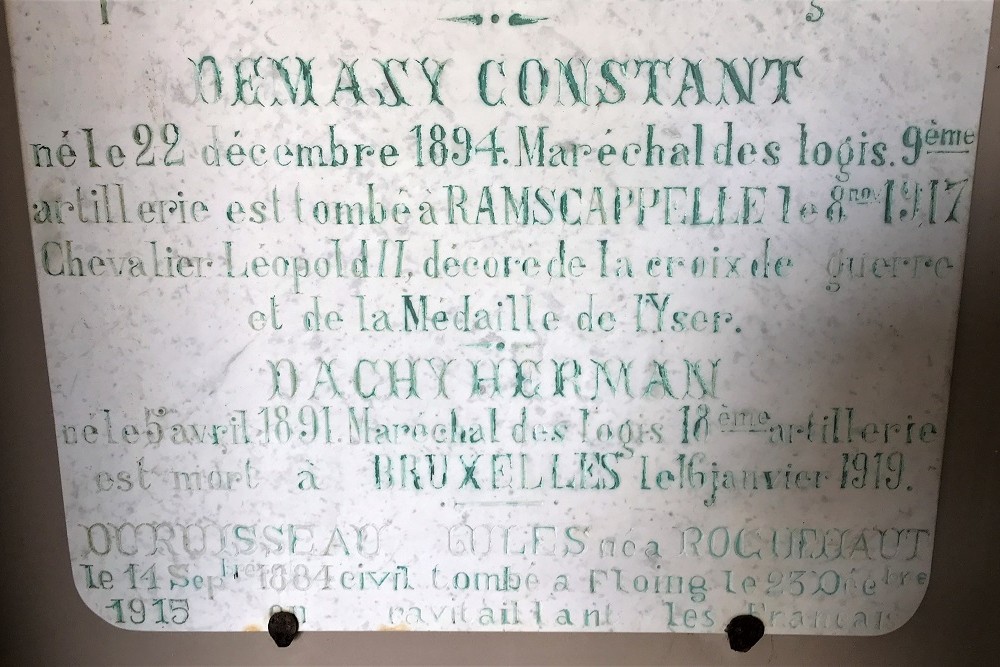 DEMASY CONSTANT
né le 22 décembre 1894. Maréchal des logis. 9ème
artillerie est tombé à RAMSCAPPELLE le 8 nov 1917
Chevalier Léopold II, décoré de la croix de guerre
et de la Médaille de l'Yser.
DACHY HERMAN
né le 5 avril 1891. Maréchal des logis 18ème artillerie
est mort à BRUXELLES le 16 janvier 1919.
DURUISSEAU JULES né à ROCHEHAUT
le 14 Sepbre 1884 civil tombé à Floing le 23 Décbre
1915 en ravitaillant les Français